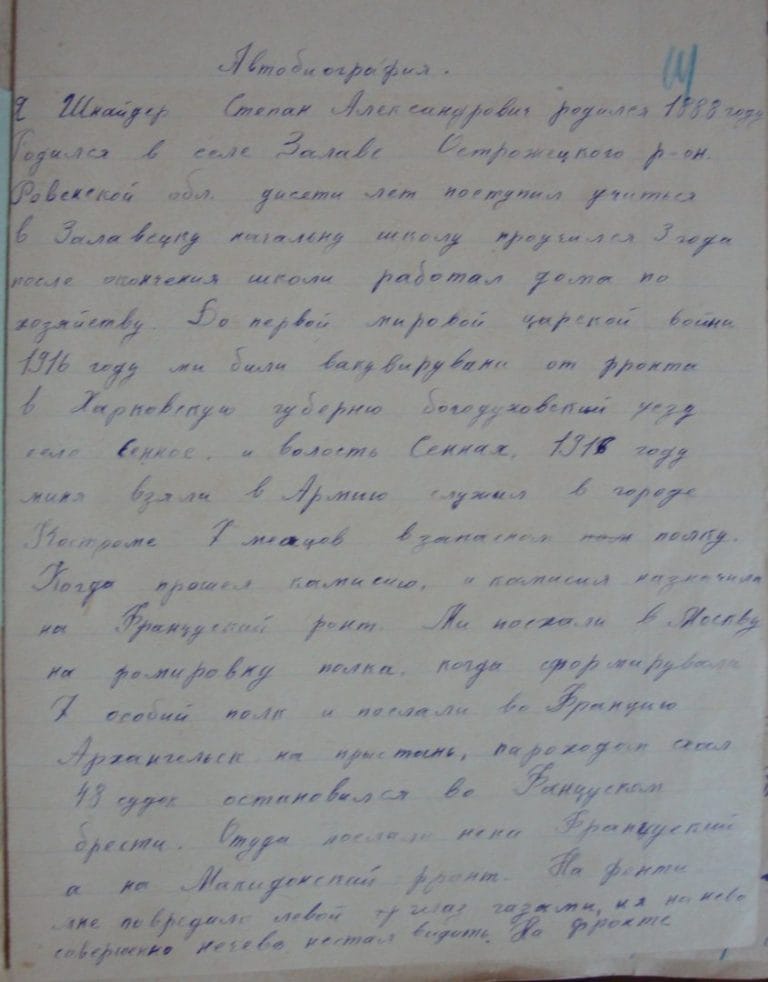 Автобиография.
Я Шнайдер Степан Александрович родился 1888 году
Родился в селе Залаве Острожецкого р-он.
Ровенской обл. дисети лет поступил учиться
в Залавецку начальну школу проучился 3 года
после окончения школи работал дома по
хозяйству. До первой мировой царской войни
1916 году ми били вакувирувани от фронта
в Харковскую губерню богодуховский уезд
село Сенное, и волость Сенная, 1916 году
миня взяли в Армию служил в городе
Костроме 7 месацов в запасном полку.
Когда прошел камисию, и камисия назначила
на Француский фонт. Ми поехали в Москву
на фомировку полка, когда сформирували
7 особий полк и послали во Францию
Архангельск на пристань, пароходом ехал
48 судок остановился во Фанцуском
брести. Отуда послали не на Француский
а на Макидонский фронт. На фонти
мне повредило левой глаз газами, и я на нево
совершенно нечево нестал видить. На фронте